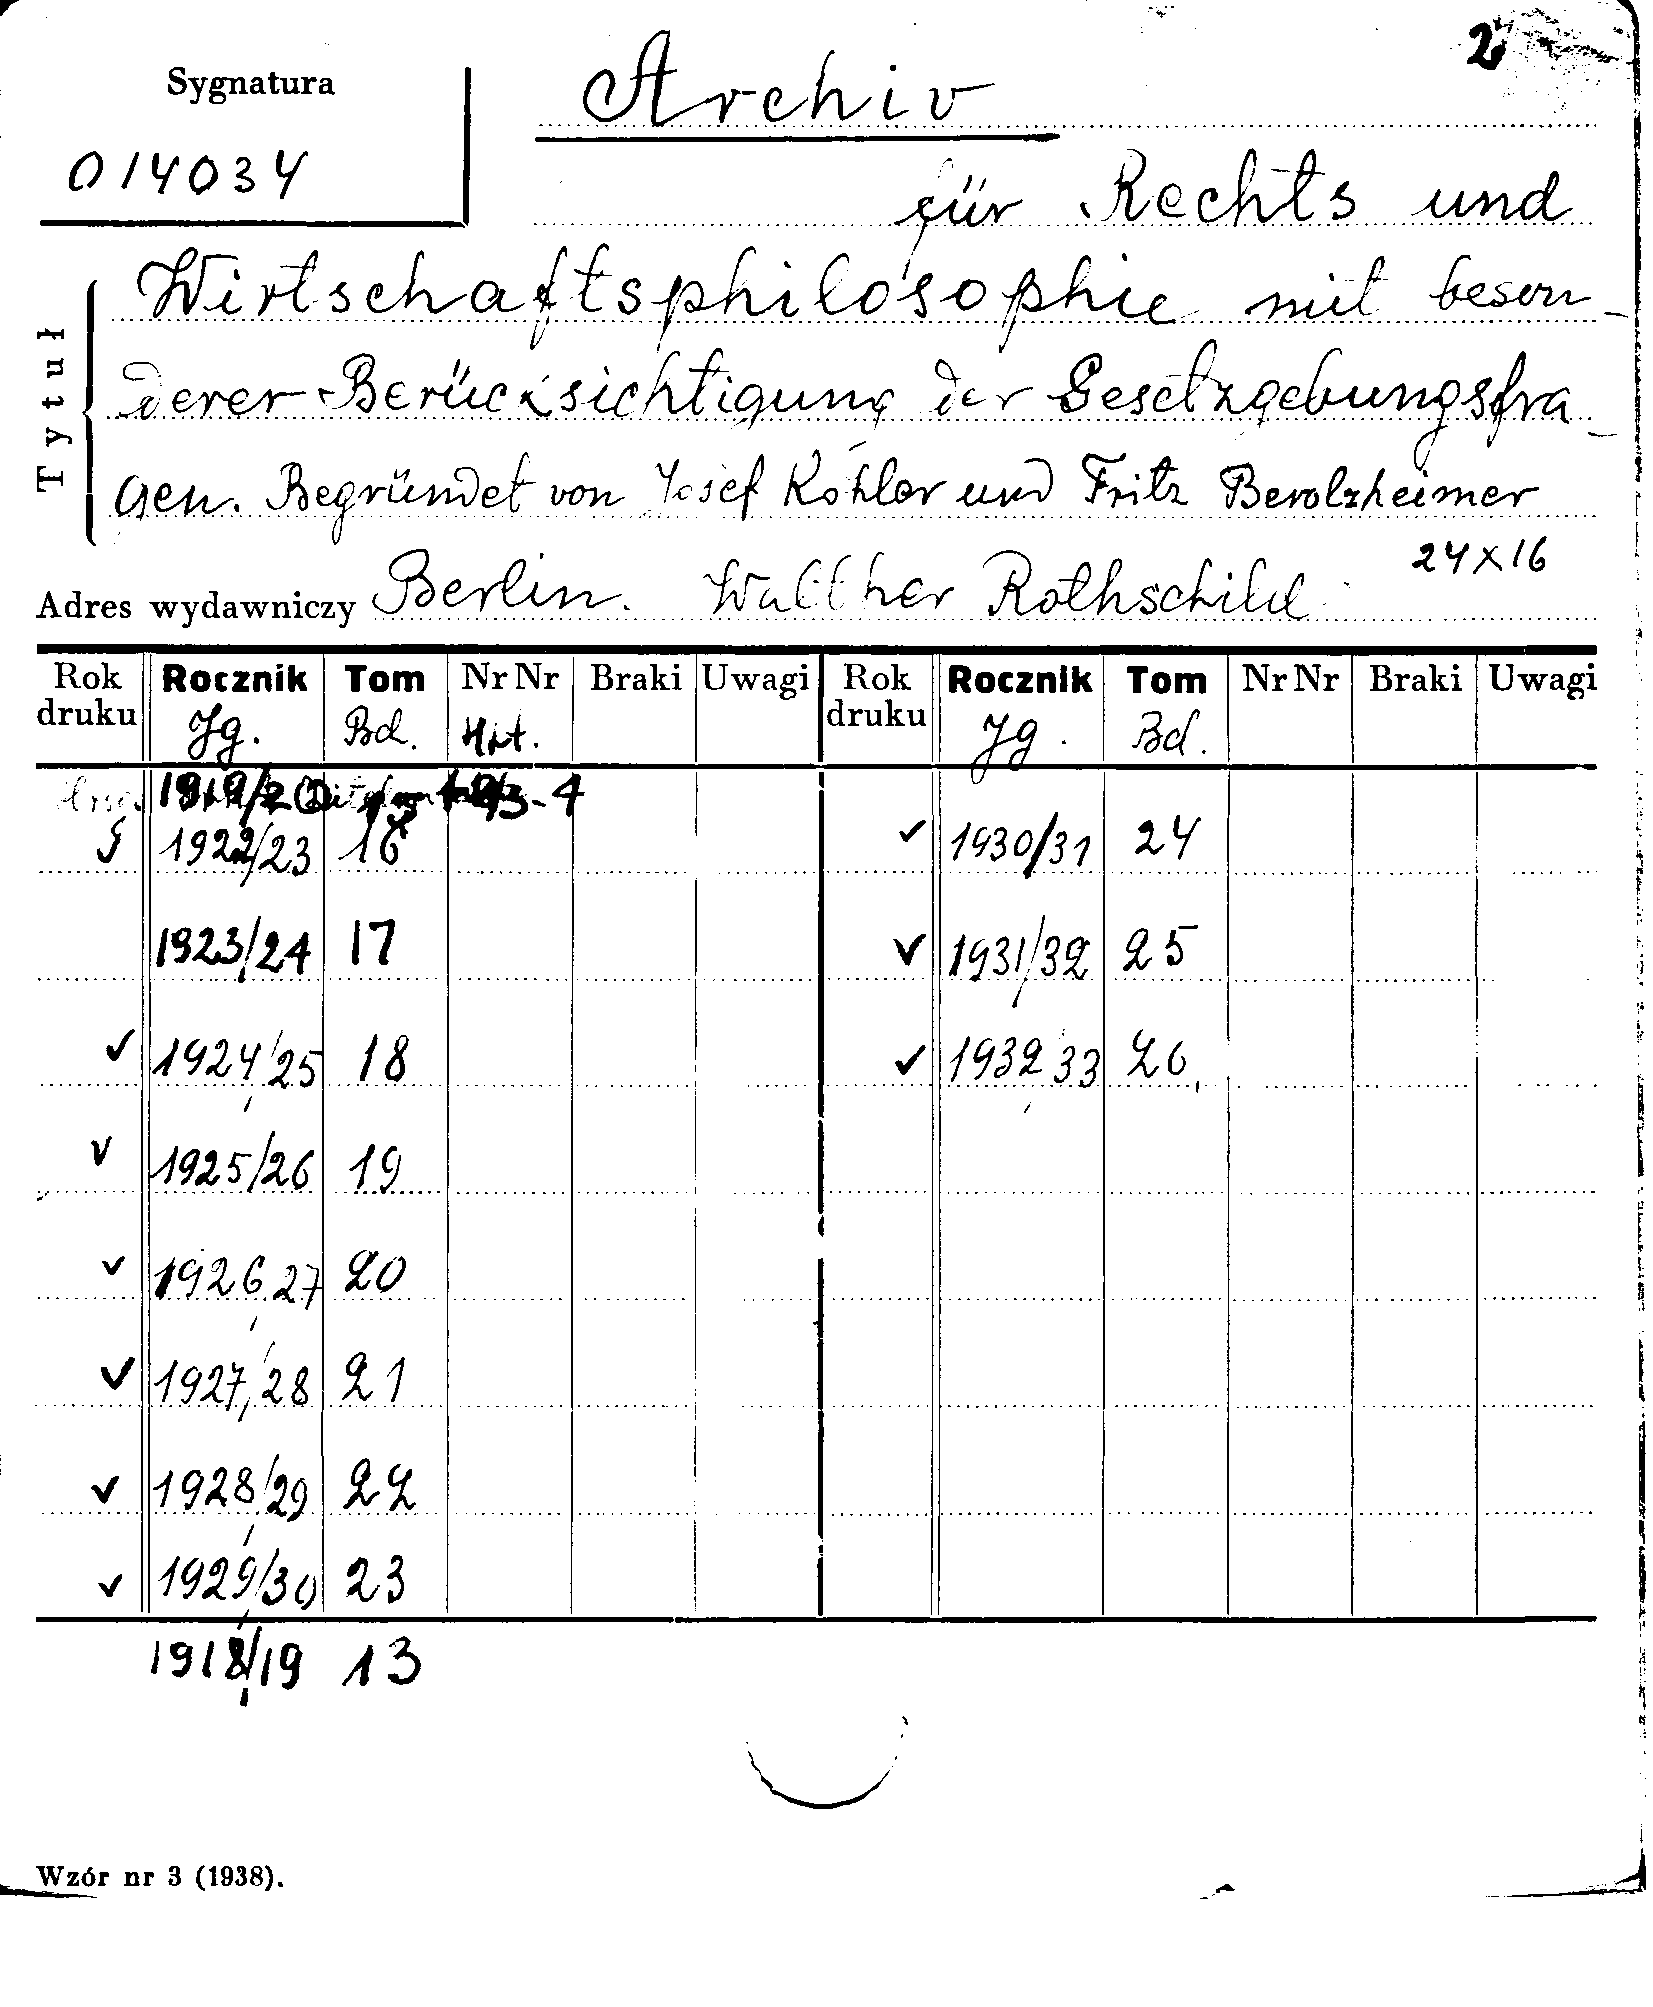 2
Sygnatura
014034
Archiv
für Rechts und
Wirtschaftsphilosophie mit beson-
derer Berücksichtigung der Gesetzgebungsfra-
gen. Begründet von Josef Kohler und Fritz Berolzheimer
Tytuł
24x16
Adres wydawniczy Berlin. Walther Rothschild
Rok druku Rocznik Tom Nr Nr Braki Uwagi Rok druku Rocznik Tom Nr Nr Braki Uwagi
Jg. Bd. Hft. Jg. Bd.
1919/20 13 - 4
1922/23 16 ✓ 1930/31 24
1923/24 17 ✓ 1931/32 25
✓ 1924/25 18 ✓ 1932/33 26
✓ 1925/26 19
✓ 1926/27 20
✓ 1927/28 21
✓ 1928/29 22
✓ 1929/30 23
1918/19 13
Wzór nr 3 (1938).